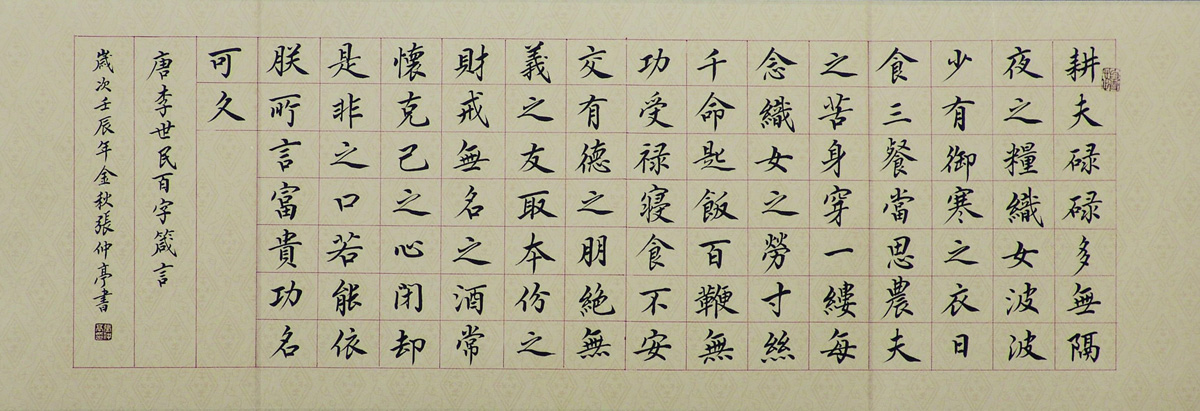 耕夫碌碌多無隔
夜之糧織女波波
少有御寒之衣日
食三餐當思農夫
之苦身穿一縷每
念織女之勞寸絲
千命匙飯百鞭無
功受禄寝食不安
交有德之朋絶無
義之友取本份之
財戒無名之酒常
懷克己之心閉却
是非之口若能依
朕所言富貴功名
可久
唐李世民百字箴言
歲次壬辰年金秋張仲亭書